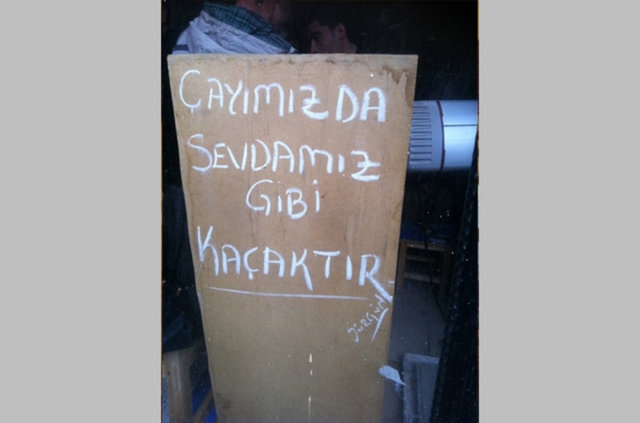 ÇAYIMIZDA
SEVDAMIZ
GİBİ
KAÇAKTIR
SÜRGÜN